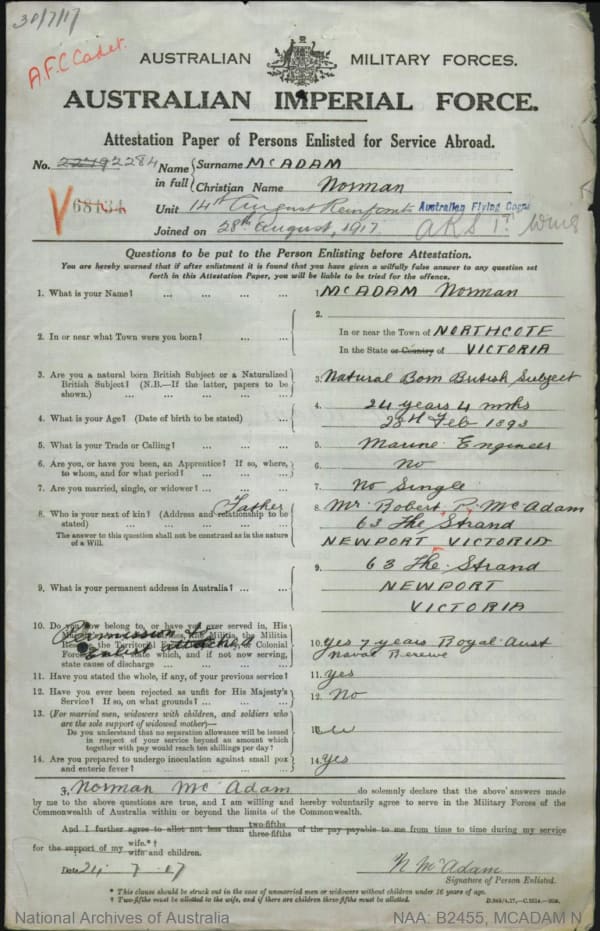 30/7/17
A.F.C Cadet.
AUSTRALIAN MILITARY FORCES.
AUSTRALIAN IMPERIAL FORCE.
Attestation Paper of Persons Enlisted for Service Abroad.
No. 2284 Name in full Surname McADAM
Christian Name Norman
V 68134
Unit 14th August Reinfonts Australian Flying Corps
Joined on 28th August, 1917 ARS 1st Wing
Questions to be put to the Person Enlisting before Attestation.
You are hereby warned that if after enlistment it is found that you have given a wilfully false answer to any question set
forth in this Attestation Paper, you will be liable to be tried for the offence.
1. What is your Name? ... ... ... ... 1. McADAM Norman
2. In or near what Town were you born? ... ... 2. In or near the Town of NORTHCOTE
In the State or Country of VICTORIA
3. Are you a natural born British Subject or a Naturalized
British Subject? (N.B.—If the latter, papers to be
shown.) ... ... ... ... ... 3. Natural Born British Subject
4. What is your Age? (Date of birth to be stated) ... 4. 24 years 4 mnths
28th Feb 1893
5. What is your Trade or Calling? ... ... ... 5. Marine Engineer
6. Are you, or have you been, an Apprentice? If so, where,
to whom, and for what period? ... ... ... 6. No
7. Are you married, single, or widower? ... ... ... 7. No Single
8. Who is your next of kin? (Address and relationship to be
stated) ... ... ... ... ...
Father
The answer to this question shall not be construed as in the nature
of a Will.
8. Mr. Robert P. McAdam
63 The Strand
NEWPORT VICTORIA
9. What is your permanent address in Australia? ... ... 9. 63 The Strand
NEWPORT
VICTORIA
10. Do you now belong to, or have you ever served in, His
the Militia, the Militia
Reserve, the Territorial or Colonial
Forces? state which, and if not now serving,
state cause of discharge ... ... ...
Permission to
Enlist attached
10. Yes 7 years Royal Aust
Naval Reserve
11. Have you stated the whole, if any, of your previous service? 11. Yes
12. Have you ever been rejected as unfit for His Majesty's
Service? If so, on what grounds? ... ... ... 12. No
13. (For married men, widowers with children, and soldiers who
are the sole support of widowed mother)—
Do you understand that no separation allowance will be issued
in respect of your service beyond an amount which
together with pay would reach ten shillings per day?
13.
14. Are you prepared to undergo inoculation against small pox
and enteric fever? ... ... ... ... 14. Yes
I, Norman McAdam do solemnly declare that the above answers made
by me to the above questions are true, and I am willing and hereby voluntarily agree to serve in the Military Forces of the
Commonwealth of Australia within or beyond the limits of the Commonwealth.
And I further agree to allot not less than two-fifths three-fifths of the pay payable to me from time to time during my service
for the support of my wife.*† wife and children.
Date 24. 7. 17
N McAdam
Signature of Person Enlisted.
* This clause should be struck out in the case of unmarried men or widowers without children under 16 years of age.
† Two-fifths must be allotted to the wife, and if there are children three-fifths must be allotted.
National Archives of Australia
NAA: B2455, MCADAM N